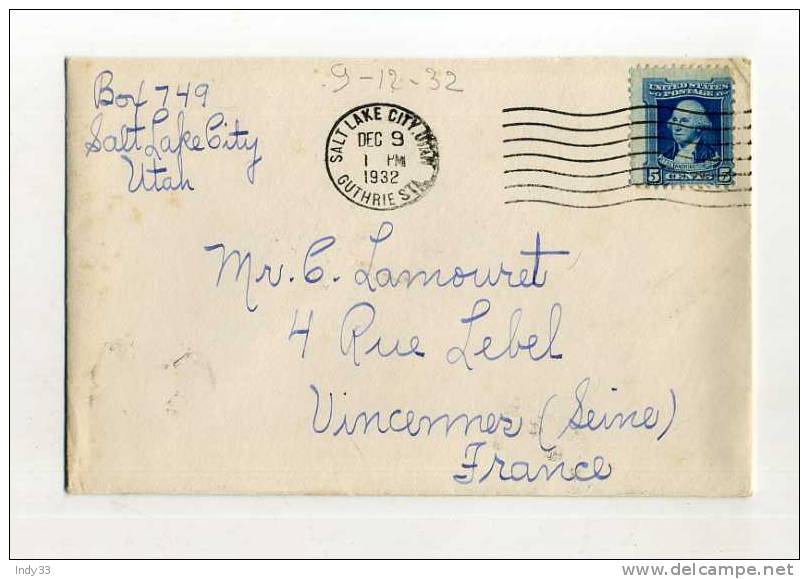 Box 749
Salt Lake City
Utah
9-12-32
SALT LAKE CITY, UTAH
DEC 9
1 PM
1932
GUTHRIE STA.
UNITED STATES
POSTAGE
5 CENTS 5
Mr. C. Lamouret
4 Rue Lebel
Vincennes (Seine)
France
Indy33
delcampe.net